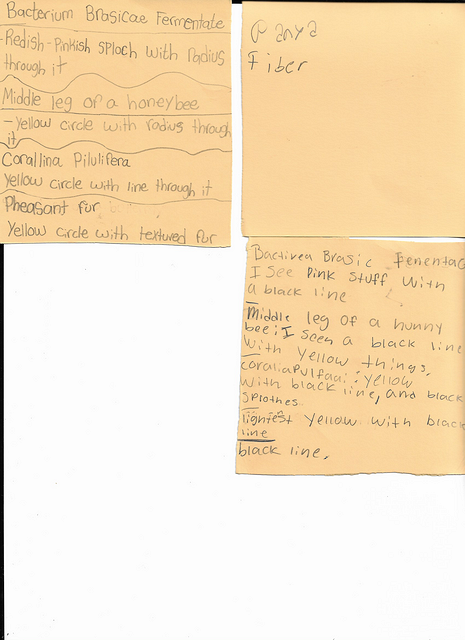 Bacterium Brasicae Fermentate
-Redish-Pinkish sploch with Radius
through it
Middle leg of a honeybee
-Yellow circle with radius through
it
Corallina Pilulifera
Yellow circle with line through it
Pheasant fur
Yellow circle with textured fur
Fiber
Bactirea Brasic Fenentac
I see Pink stuff with
a black line
Middle leg of a hunny
bee: I seen a black line
with yellow things.
coraliapulfaai: yellow
with black line, and black
splothes
lightest yellow with black
line
black line.